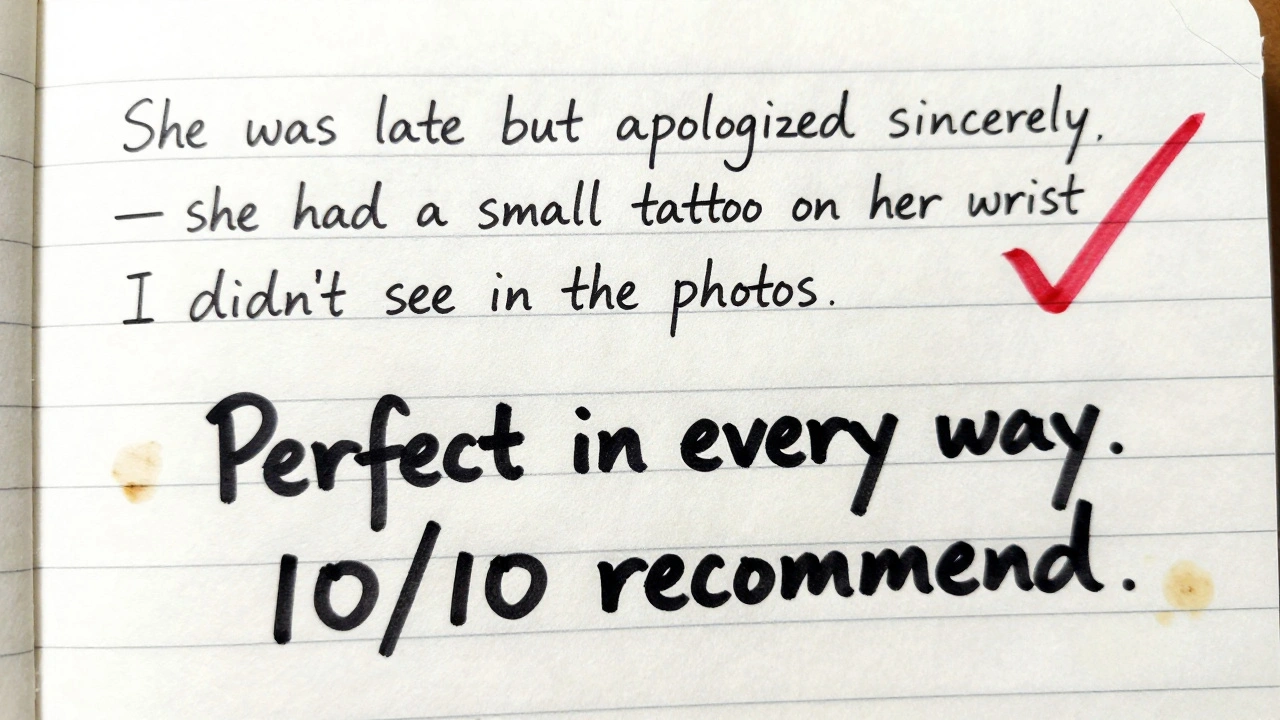 She was late but apologized sincerely.
— she had a small tattoo on her wrist
I didn't see in the photos.
Perfect in every way.
10/10 recommend.